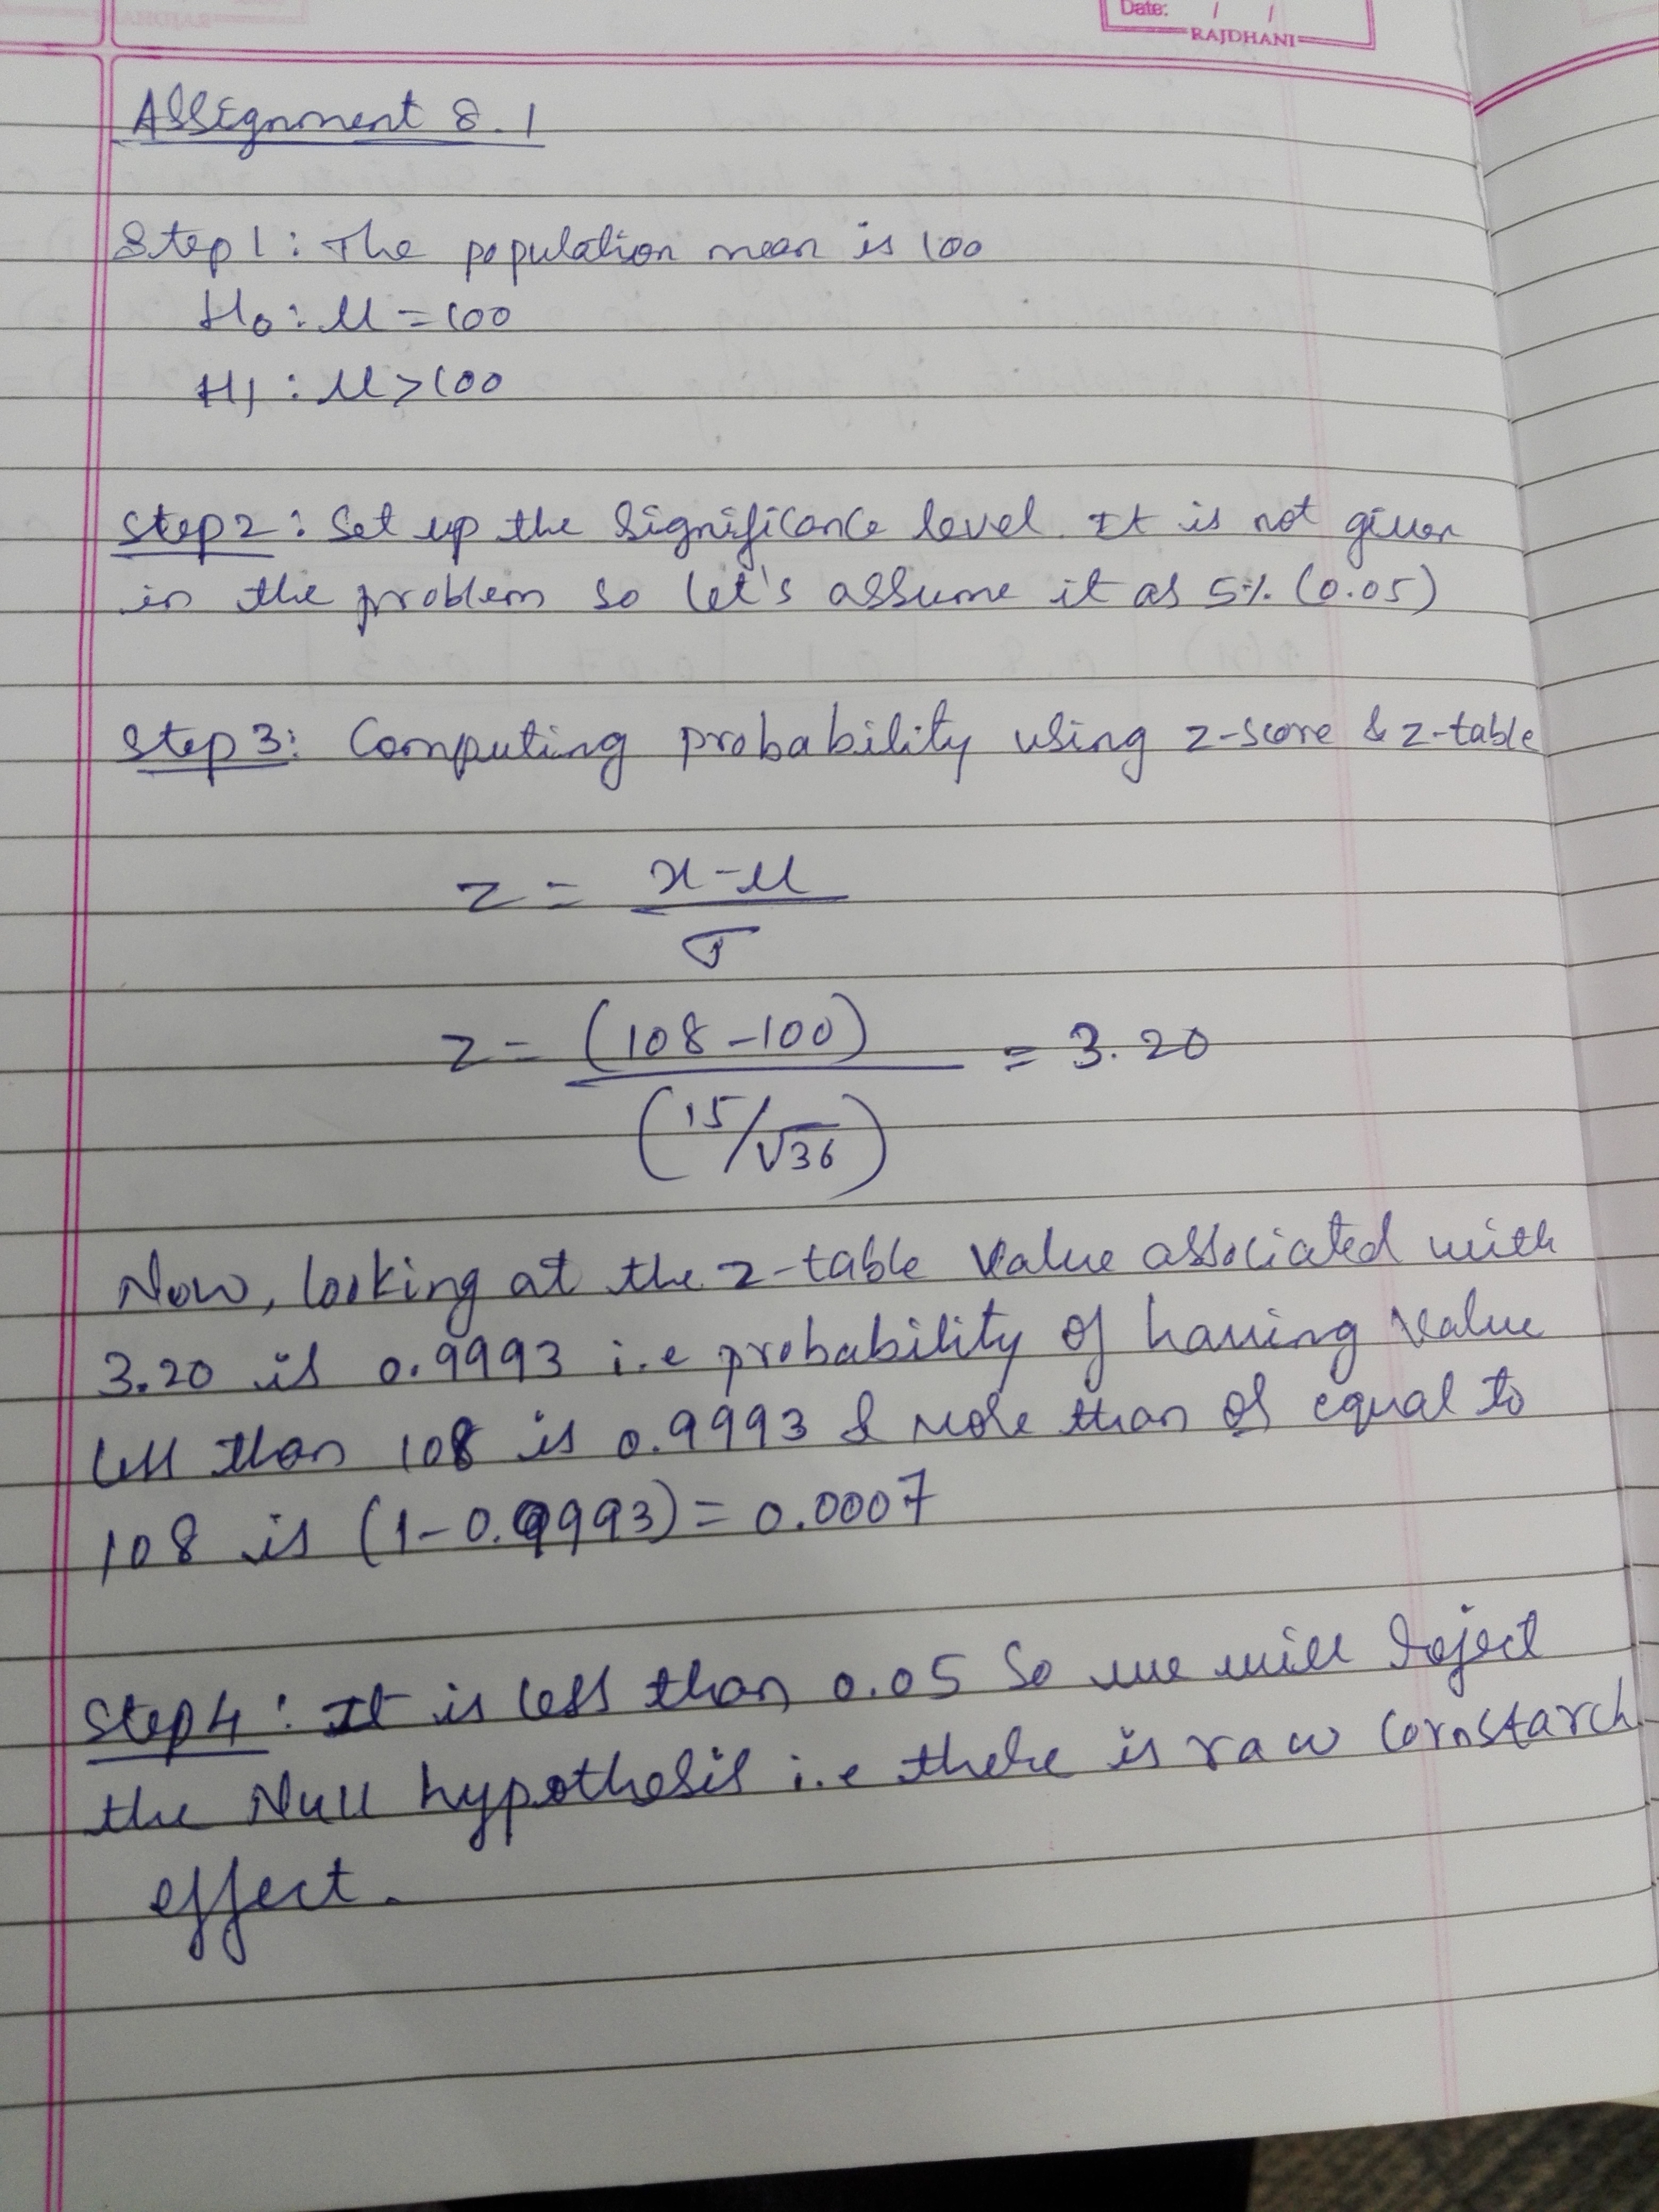 Date: / /
RAJDHANI
Assignment 8.1
Step 1: The population mean is 100
H₀: μ = 100
H₁: μ > 100
Step 2: Set up the significance level. It is not given
in the problem so let's assume it as 5% (0.05)
Step 3: Computing probability using z-score & z-table
z = x-μ
σ
z = (108-100) = 3.20
(15/√36)
Now, looking at the z-table value associated with
3.20 is 0.9993 i.e probability of having value
less than 108 is 0.9993 & more than or equal to
108 is (1-0.9993) = 0.0007
Step 4: It is less than 0.05 So we will reject
the Null hypothesis i.e there is raw cornstarch
effect.